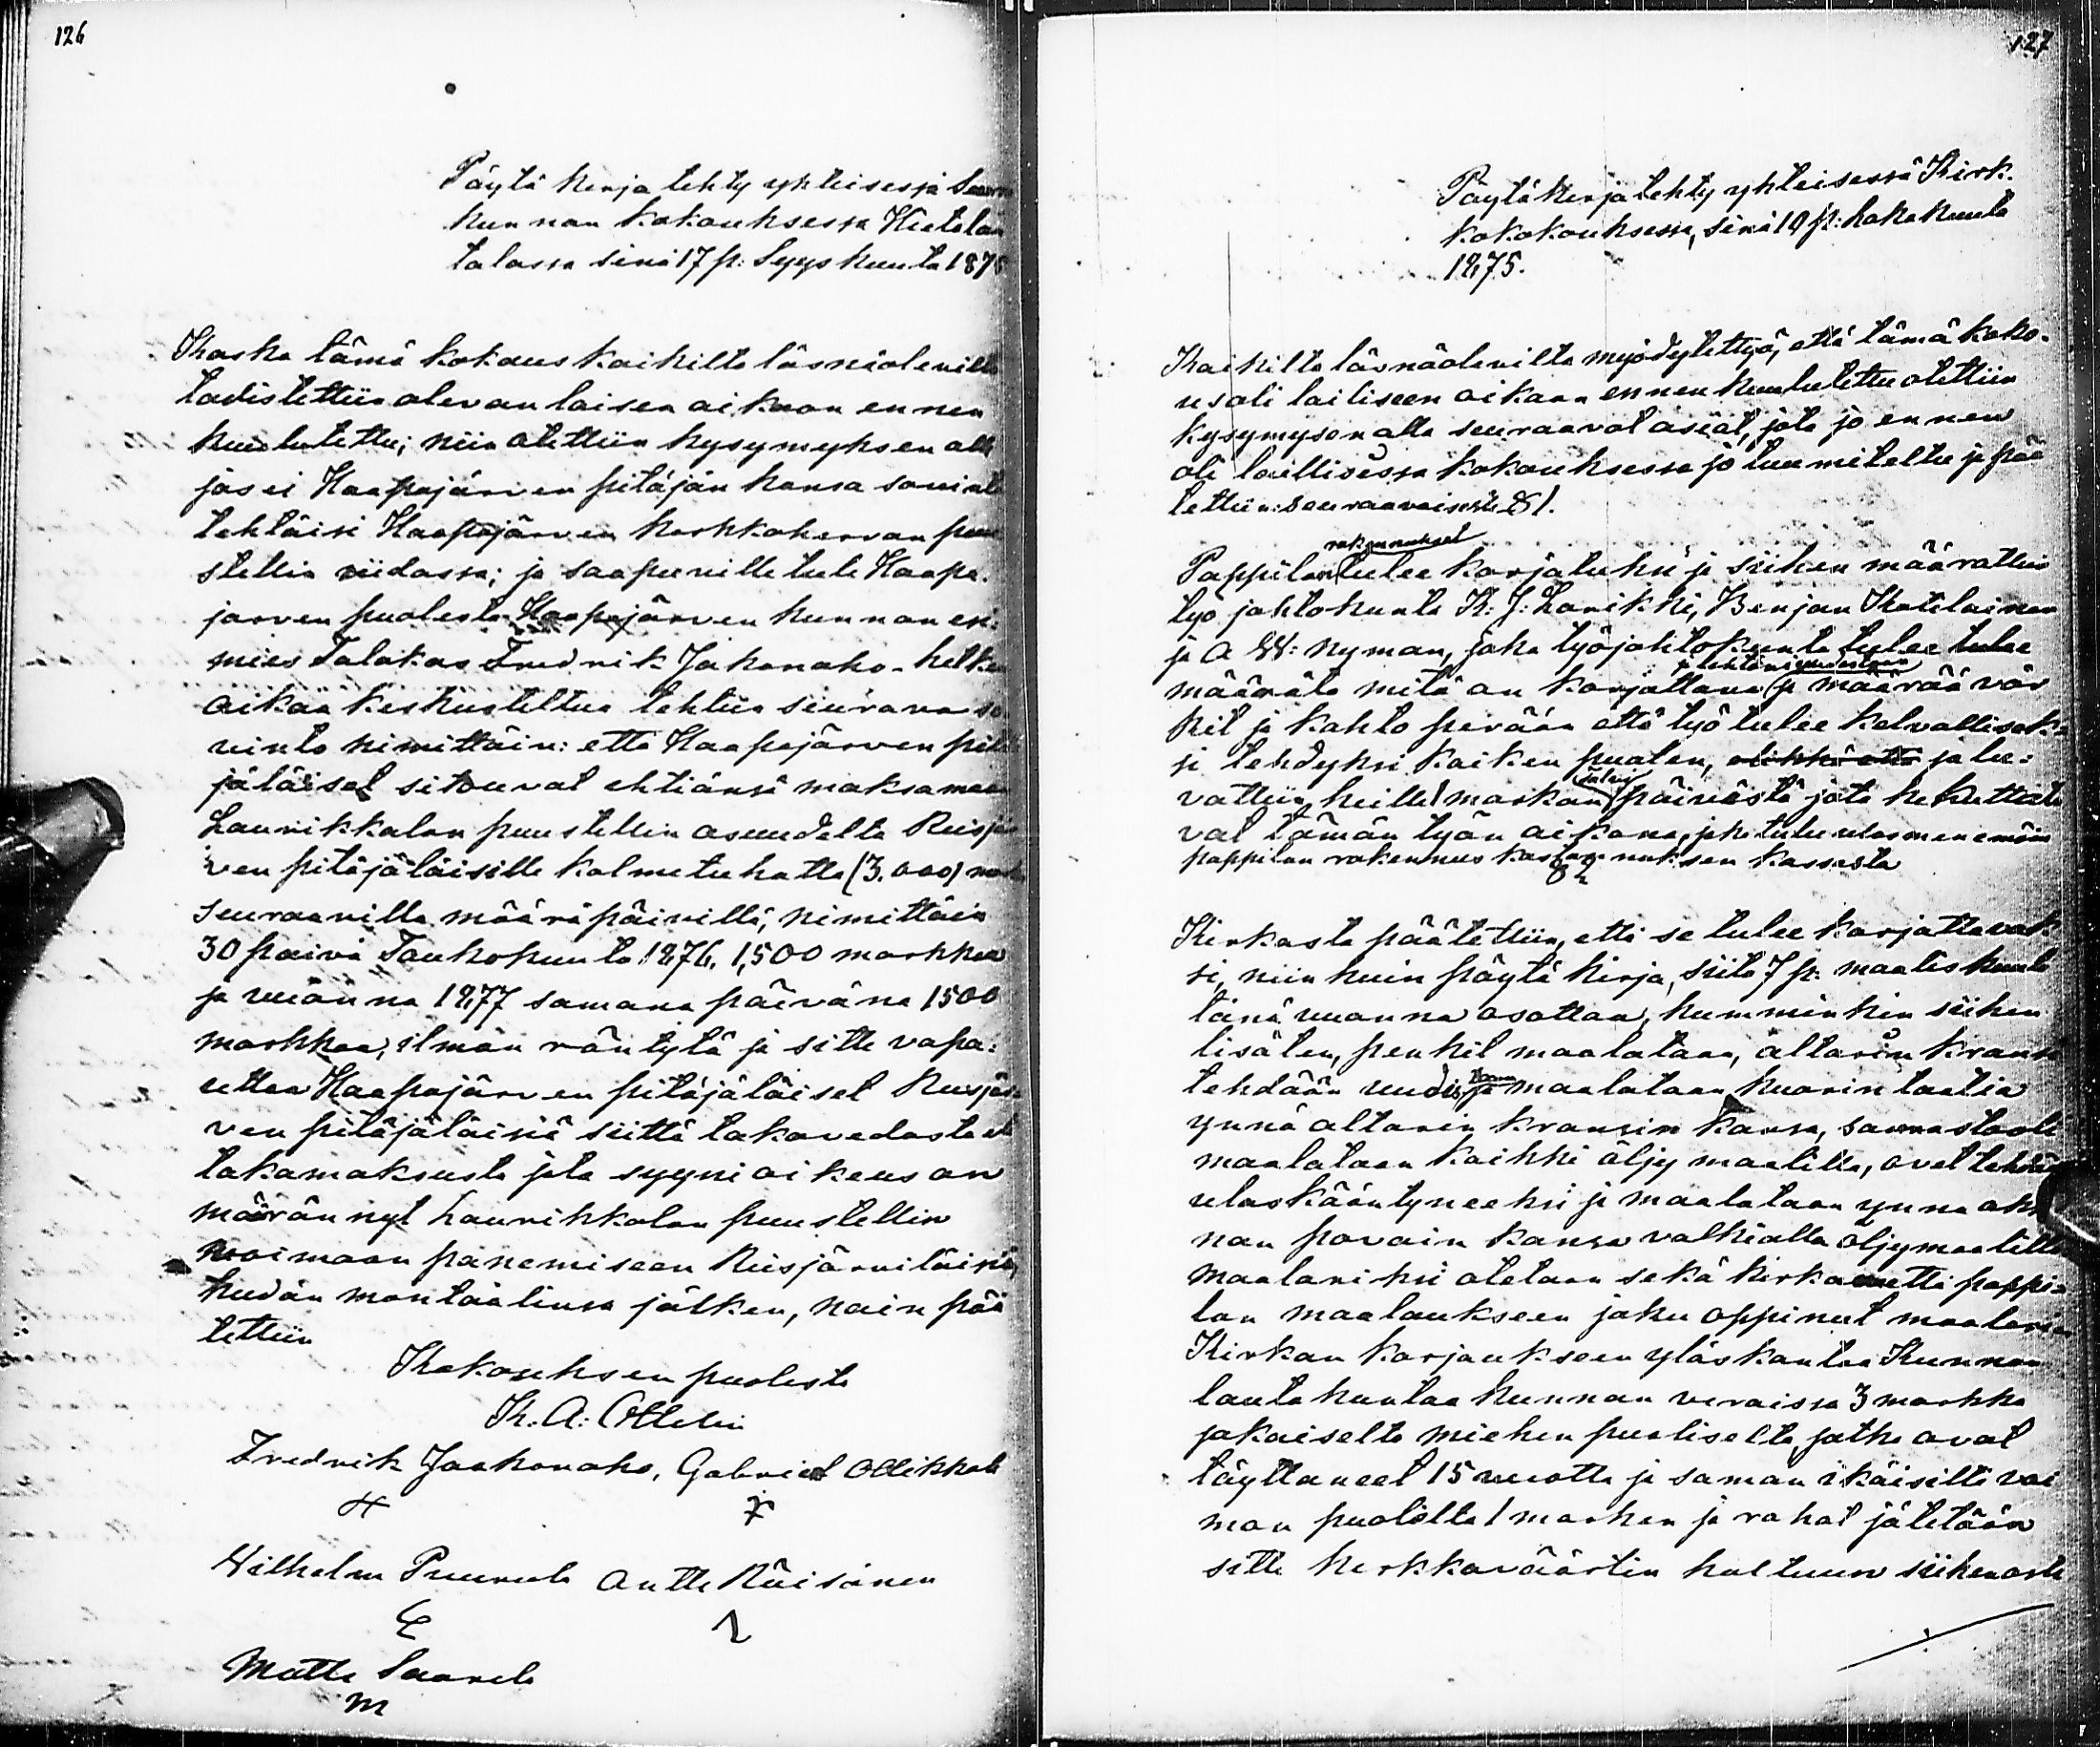 126
Pöytä kirja tehty yhteisessä Seura
kunnan kokouksessa Kietalan
talossa sinä 17 p: Syyskuuta 1875
Koska tämä kokous kaikilta läsnäolevilta
todistettiin olevan laisen aikaan ennen
kuulutettu; niin otettiin kysymyksen alle
jos ei Haapajärven pitäjän kansa sovinto
tehtäisi Haapajärven kirkkoherran puu
stellin riidassa; ja saapuville tuli Haapa-
jarven puolesta Haapajärven kunnan esi-
mies Talokas Fredrik Jakonaho - hetken
aikaa keskusteltua tehtiin seurava so
vinto nimittäin: että Haapajärven pitä
jäläiset sitouvat ehtiänsä maksamaan
Laurikkalan puustellin asuudelta Reisjär
ven pitäjäläisille kolmetuhatta (3,000) mark
seuraavilla määräpäivillä, nimittäin
30 päivä Toukokuuta 1876, 1,500 markkaa
ja vuonna 1877 samana päivänä 1500
markkaa, ilman räntytä ja sitte vapa-
uttaa Haapajärven pitäjäläiset Reisjär-
ven pitäjäläisiä siittä takavedosta eli
takamaksusta jota syyni oikeus on
määrännyt Laurikkalan puustellin
woimaan panemiseen Reisjärviläisiä,
heidän mantaalinsa jälken, näin pää
tettiin
Kokouksen puolesta
K. A. Ottelin
Fredrik Jaakonaho, Gabriel Ollikkala
Wilhelm Puurula Antti Räisänen
Matti Saarela
M
127
Pöytäkirja tehty yhteisessä Kirk-
kokokouksessa, sinä 10 p: lokakuuta
1875.
Kaikilta läsnäolevilta myödytettyä, että tämä koko-
us oli lailiseen aikaan ennen kuulutettu otettiin
kysymyson alla seuraavat asiat, jota jo ennen
oli laillisessa kokouksessa jo tuumiteltu ja pää
tettiin: seuraavaisesti § 1.
rakennukset
Pappilan tulee korjatuksi ja siihen määrattiin
tyo johtokunta K: J: Larikki, Benjam Kotilainen
ja A W: Nyman, joka työjohtokunta tulee tulee
ja tehtävä uudestaan
määräta mitä on korjattava ja määrää vär
kit ja kahto perään että työ tulee kelvollisek-
si tehdyksi kaiken puolen, ja lu-
vattiin heille 1 markan päivästä jota he kuttaa
vat tämän työn aikana, joka tulee ulosmenemään
pappilan rakennus kustannuksen kassasta
§ 2
Kirkosta päätettiin, että se tulee korjattavak
si, niin kuin pöytä kirja, siitä 7 p: maaliskuuta
tänä vuonna osottaa, kumminkin siihen
lisäten, penkit maalataan, altarin kransi
tehdään uudis ja maalataan kuorin laatia
ynnä altarin kransin kansa, saarnastooli
maalataan kaikki öljy maalilla, ovet tehdään
ulos kääntyneeksi ja maalataan ynnä akk
nan povain kansa valkialla öljymaalilla
maalariksi otetaan sekä kirkon että pappi-
lan maalaukseen joku oppinut maalari
Kirkon korjaukseen yläskantaa Kunnan
lautakuntaa kunnan veraissa 3 markka
jokaiselta miehen puoliselta jotka ovat
täyttaneet 15 vuotta ja saman ikäisiltä vai
mon puolilta 1 markan ja rahat jätetään
sitte kirkkoväärtin haltuun siihen asti